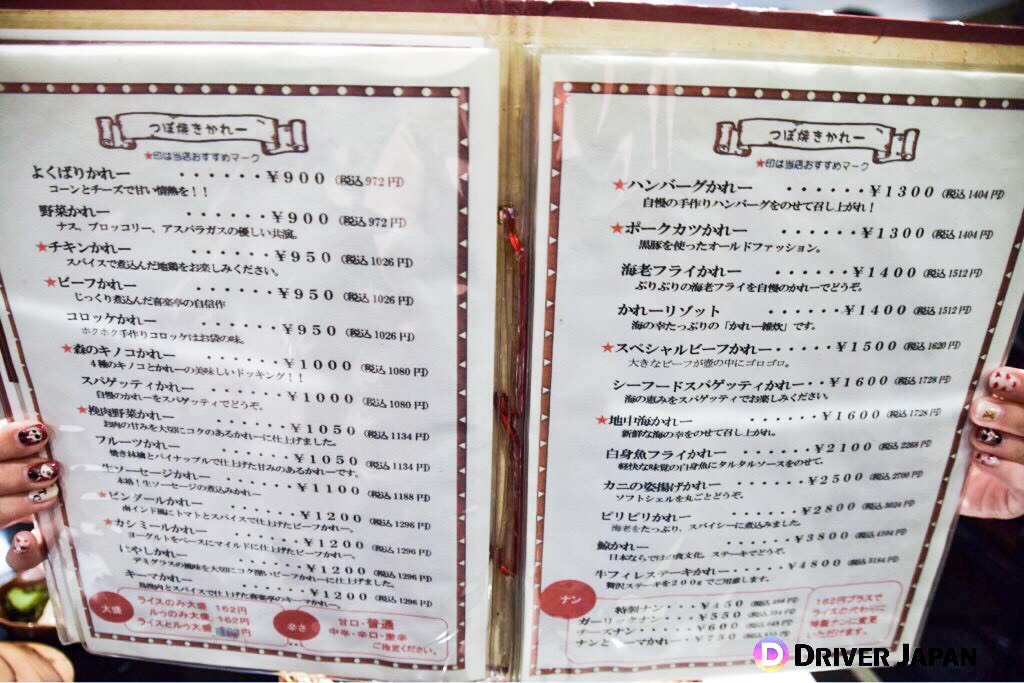 つぼ焼きかれー
★印は当店おすすめマーク
よくばりかれー ・・・・・・¥900(税込972円)
コーンとチーズで甘い情熱を！！
野菜かれー ・・・・・・¥900(税込972円)
ナス、ブロッコリー、アスパラガスの優しい共演。
★チキンかれー ・・・・・・¥950(税込1026円)
スパイスで煮込んだ地鶏をお楽しみください。
★ビーフかれー ・・・・・・¥950(税込1026円)
じっくり煮込んだ喜楽亭の自信作
コロッケかれー ・・・・・・¥950(税込1026円)
ホクホク手作りコロッケはお袋の味。
★森のキノコかれー ・・・・・¥1000(税込1080円)
4種のキノコとかれーの美味しいドッキング！！
スパゲッティかれー ・・・・・¥1000(税込1080円)
自慢のかれーをスパゲッティでどうぞ。
★挽肉野菜かれー ・・・・・¥1050(税込1134円)
お肉の甘みを大切にコクのあるかれーに仕上げました。
フルーツかれー ・・・・・¥1050(税込1134円)
焼き林檎とパイナップルで仕上げた甘みのあるかれーです。
生ソーセージかれー ・・・・・¥1100(税込1188円)
本格！生ソーセージの煮込みかれー
★ビンダールかれー ・・・・・¥1200(税込1296円)
南インド風にトマトとスパイスで仕上げたビーフかれー。
★カシミールかれー ・・・・・¥1200(税込1296円)
ヨーグルトをベースにマイルドに仕上げたビーフかれー。
はやしかれー ・・・・・¥1200(税込1296円)
デミグラスの風味を大切にコク深いビーフかれーに仕上げました。
キーマかれー ・・・・・¥1200(税込1296円)
鶏挽肉とスパイスで仕上げた喜楽亭のキーマかれー。
大盛
ライスのみ大盛 162円
ルゥのみ大盛 162円
ライスとルゥ大盛
辛さ
甘口・普通
中辛・辛口・激辛
ご指定ください。
つぼ焼きかれー
★印は当店おすすめマーク
★ハンバーグかれー ・・・・・・¥1300(税込1404円)
自慢の手作りハンバーグをのせて召し上がれ！
★ポークカツかれー ・・・・・・¥1300(税込1404円)
黒豚を使ったオールドファッション。
海老フライかれー ・・・・・・¥1400(税込1512円)
ぷりぷりの海老フライを自慢のかれーでどうぞ。
かれーリゾット ・・・・・・¥1400(税込1512円)
海の幸たっぷりの「かれー雑炊」です。
★スペシャルビーフかれー・・・・・¥1500(税込1620円)
大きなビーフが壺の中にゴロゴロ。
シーフードスパゲッティかれー・・¥1600(税込1728円)
海の恵みをスパゲッティでお楽しみください。
★地中海かれー ・・・・・・¥1600(税込1728円)
新鮮な海の幸をのせて召し上がれ。
白身魚フライかれー ・・・・・¥2100(税込2268円)
軽快な味覚の白身魚にタルタルソースをのせて。
カニの姿揚げかれー ・・・・・¥2500(税込2700円)
ソフトシェルを丸ごとどうぞ。
ピリピリかれー ・・・・・¥2800(税込3024円)
海老をたっぷり、スパイシーに煮込みました
鯨かれー ・・・・・¥3800(税込4104円)
日本ならではの食文化。ステーキでどうぞ。
牛フィレステーキかれー ・・・・¥4800(税込5184円)
贅沢ステーキを200gでご用意します。
ナン
特製ナン・・・¥450
ガーリックナン・・・¥550
チーズナン・・・¥600
ナンとキーマかれー・・・¥750
162円プラスで
ライスの代わりに
特製ナンに変更
いただけます。
DRIVER JAPAN